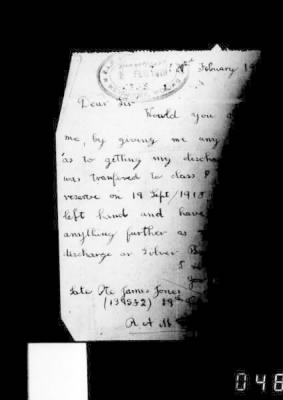 February 19
Dear Sir
Would you
me, by giving me any
as to getting my discha
was tranfered to class P
reserve on 19 Sept/1918
left hand and have
anything further as
discharge or Silver B
I
You
Late Pte James Jones
(139532) 19th
R A M
048